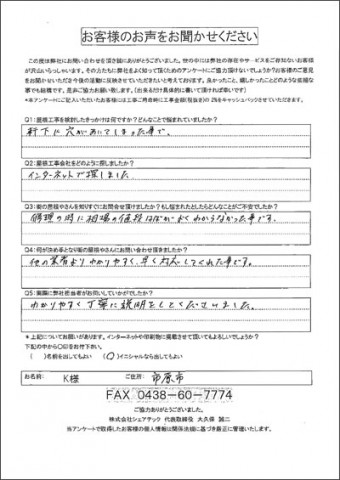 お客様のお声をお聞かせください
この度は弊社にお問い合わせを頂き誠にありがとうございました。世の中には弊社の存在やサービスをご存知ないお客様
が沢山いらっしゃいます。その方たちにも弊社をよく知って頂くためのアンケートにご協力頂けないでしょうか？お客様のご意見
をお聞かせいただき今後の活動に反映させていただきたいと考えております。良かったこと、嬉しかったことどのような些細な
事でも結構です。是非ご協力お願い致します。（出来るだけ具体的に書いて頂ければ幸いです）
*本アンケートにご記入いただいたお客様には工事ご用命時に工事金額（税抜き）の2％をキャッシュバックさせていただきます。
Q1：屋根工事を検討したきっかけは何ですか？どんなことで悩まれていましたか？
軒下に穴があいてしまった事で。
Q2：屋根工事会社をどのように探しましたか？
インターネットで探しました
Q3：街の屋根やさんを知りすぐにお問合せ頂けましたか？もし悩まれたとしたらどんなことがご不安でしたか？
修理の時に相場の値段はばがよくわからなかった事です。
Q4：何が決め手となり街の屋根やさんにお問い合わせ頂きましたか？
他の業者よりわかりやすく、早く対応してくれた事です。
Q5：実際に弊社担当者がお伺いしていかがでしたか？
わかりやすく丁寧に説明をしてくださいました。
*上記についてお願いがあります。インターネットや印刷物に掲載させて頂いてもよろしいでしょうか？
下記の中から○印をお付け下さい。
（　）名前を出してもよい　（○）イニシャルなら出してもよい
お名前： K様 ご住所： 市原市
FAX 0438-60-7774
ご協力ありがとうございました。
株式会社シェアテック 代表取締役 大久保 誠二
当アンケートで取得したお客様の個人情報は関係法規に基づき厳正に管理いたします。